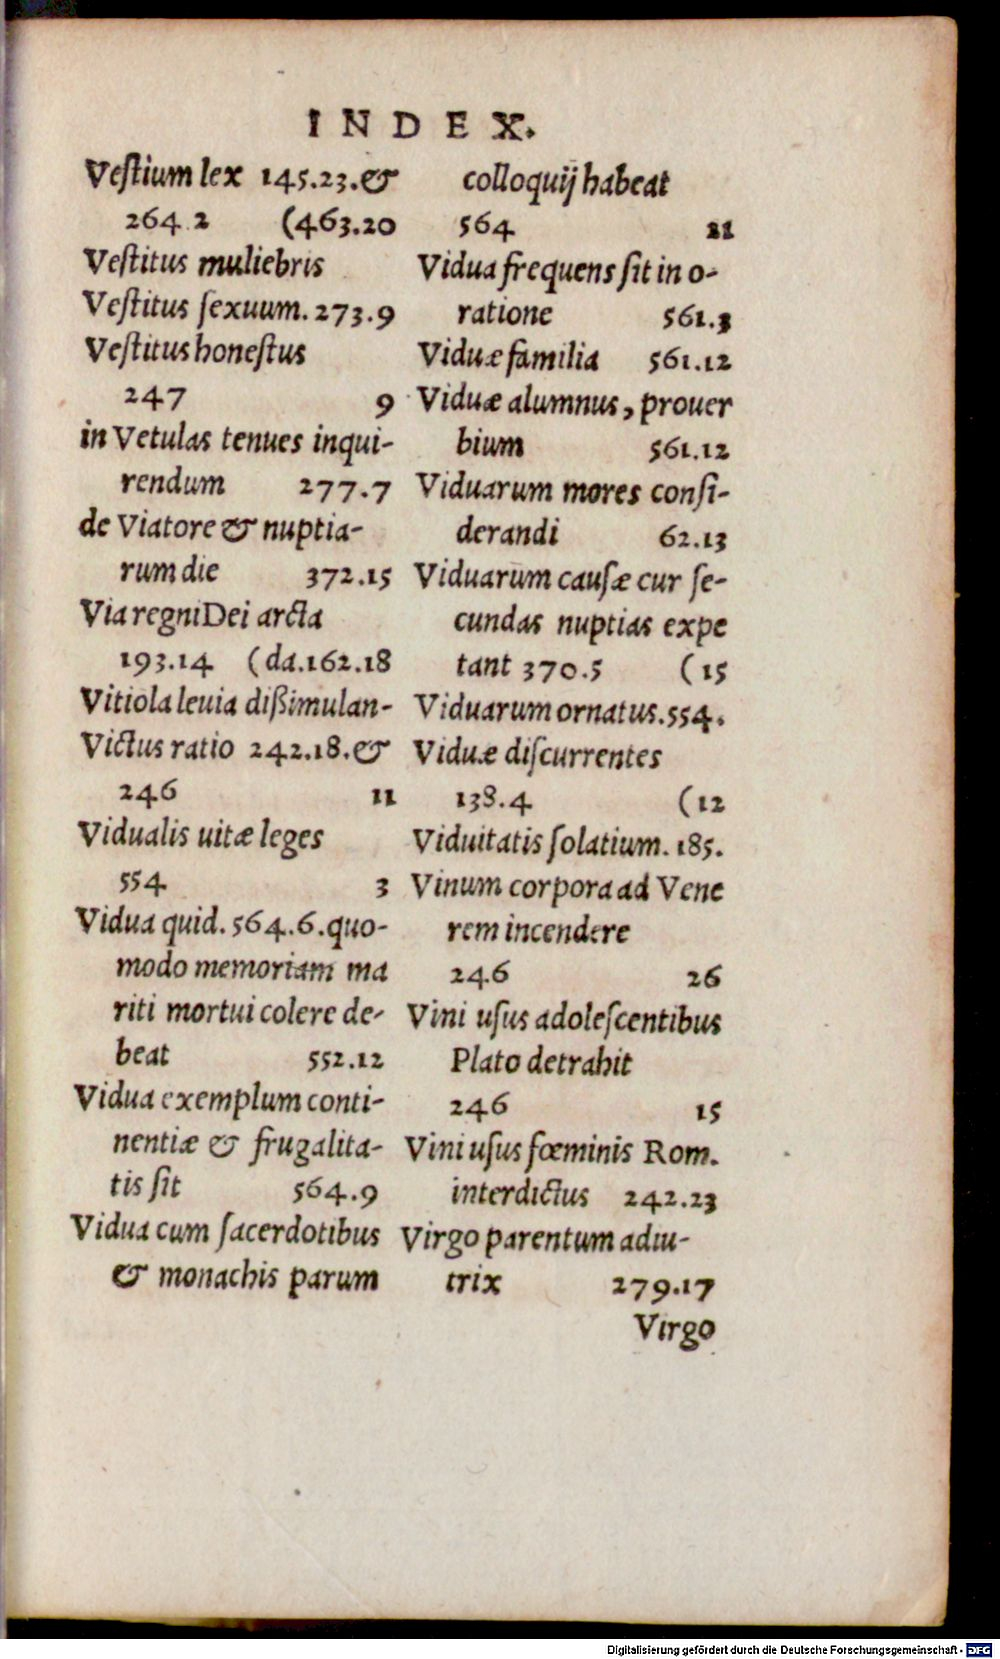 INDEX.
Veſtium lex 145.23.&
264.2 (463.20
Veſtitus muliebris
Veſtitus ſexuum. 273.9
Veſtitus honeſtus
247 9
in Vetulas tenues inqui-
rendum 277.7
de Viatore & nuptia-
rum die 372.15
Via regni Dei arcta
193.14 (da.162.18
Vitiola leuia dißimulan-
Victus ratio 242.18.&
246 11
Vidualis uitæ leges
554 3
Vidua quid. 564.6. quo-
modo memoriam ma
riti mortui colere de-
beat 552.12
Vidua exemplum conti-
nentiæ & frugalita-
tis ſit 564.9
Vidua cum ſacerdotibus
& monachis parum
colloquij habeat
564 21
Vidua frequens ſit in o-
ratione 561.3
Viduæ familia 561.12
Viduæ alumnus, prouer
bium 561.12
Viduarum mores conſi-
derandi 62.13
Viduarum cauſæ cur ſe-
cundas nuptias expe
tant 370.5 (15
Viduarum ornatus. 554.
Viduæ diſcurrentes
138.4 (12
Viduitatis ſolatium. 185.
Vinum corpora ad Vene
rem incendere
246 26
Vini uſus adoleſcentibus
Plato detrahit
246 15
Vini uſus fœminis Rom.
interdictus 242.23
Virgo parentum adiu-
trix 279.17
Virgo
Digitalisierung gefördert durch die Deutsche Forschungsgemeinschaft - DFG